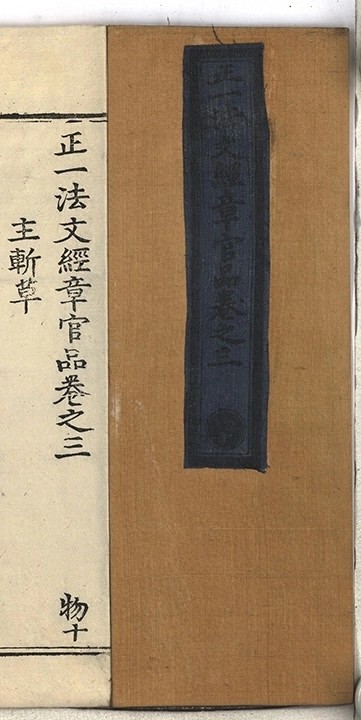 正一法文經章官品卷之三
正一法文經章官品卷之三
物十
主斬草